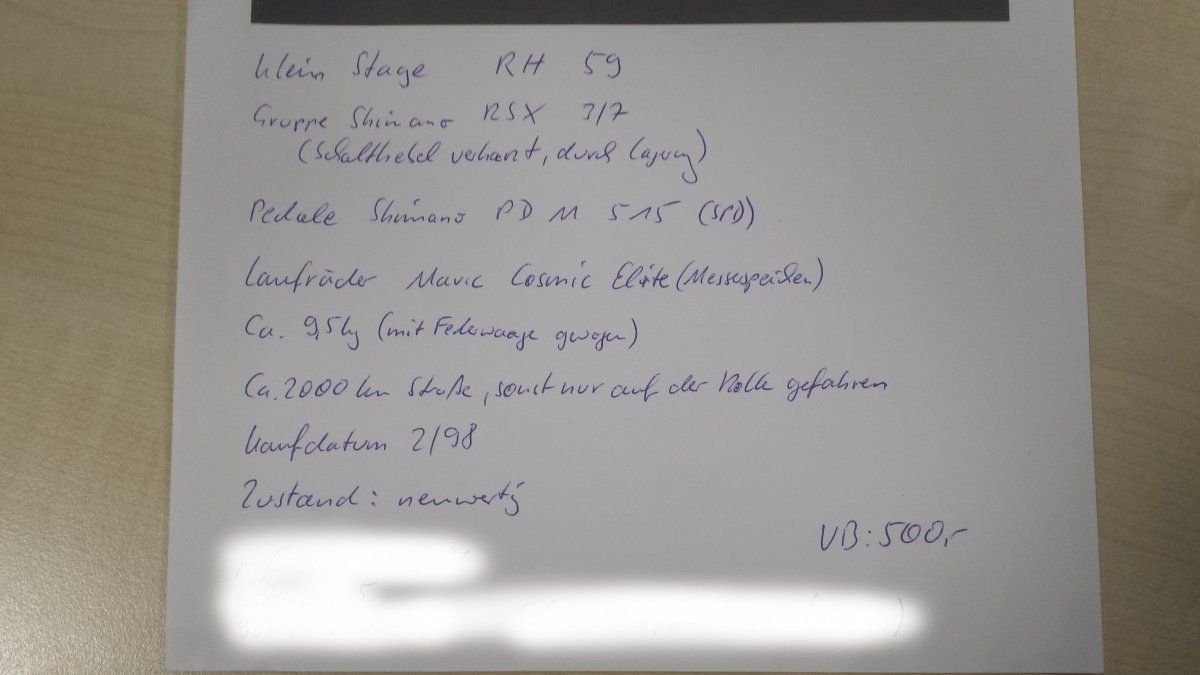 Klein Stage RH 59
Gruppe Shimano RSX 3/7
(Schalthebel verharzt, durch Lagerung)
Pedale Shimano PD M 515 (SPD)
Laufräder Mavic Cosmic Elite (Messerspeichen)
Ca. 9,5 kg (mit Federwaage gewogen)
Ca. 2000 km Straße, sonst nur auf der Rolle gefahren
Kaufdatum 2/98
Zustand: neuwertig
VB: 500,-